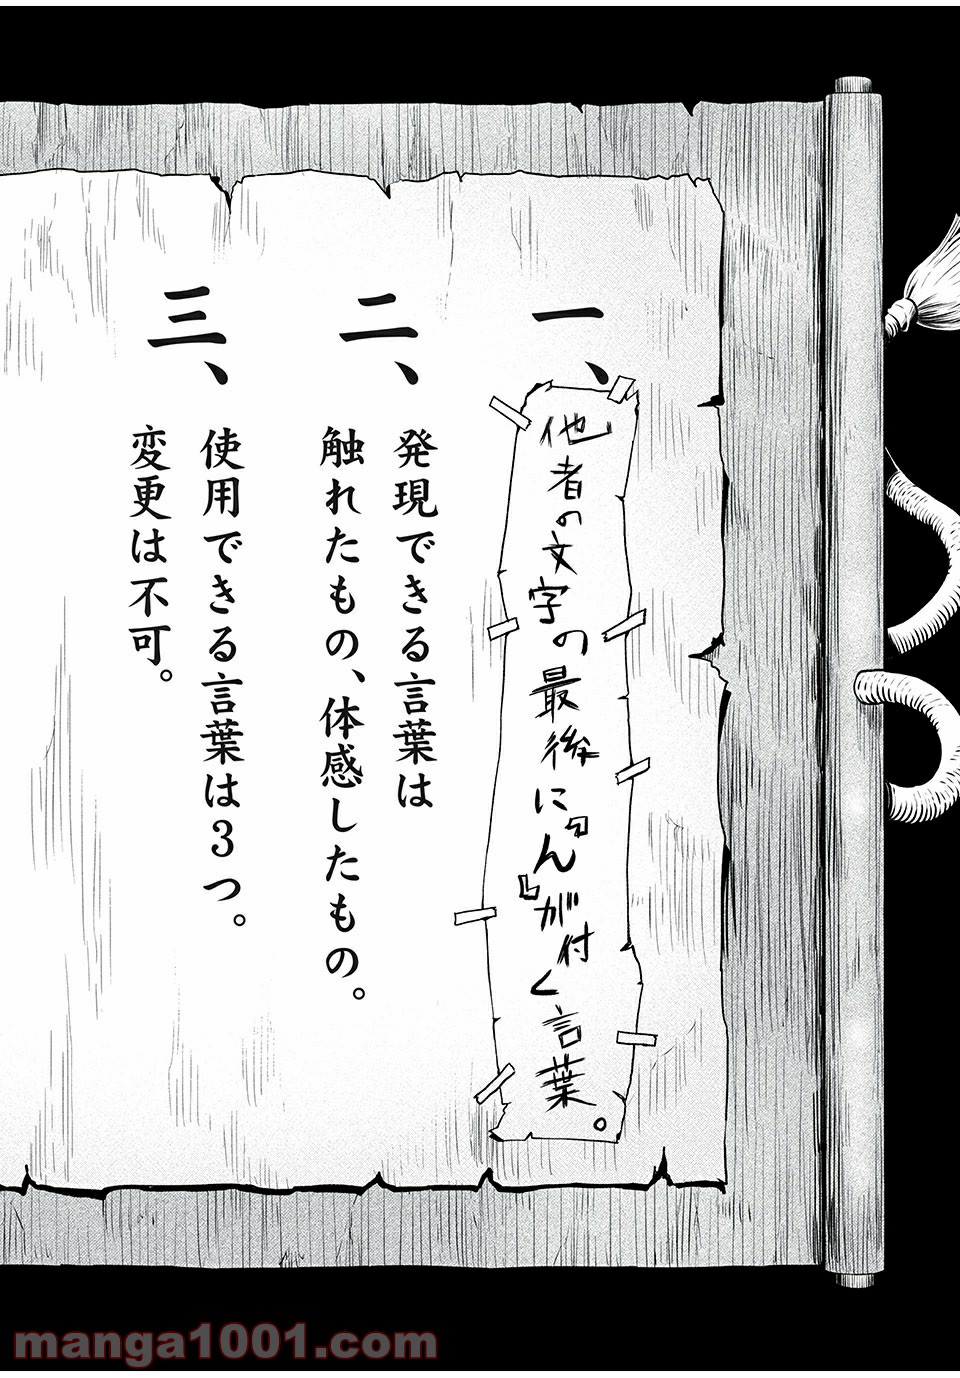 一、
他者の文字の最後に『ん』が付く言葉。
二、
発現できる言葉は
触れたもの、体感したもの。
三、
使用できる言葉は3つ。
変更は不可。
manga1001.com